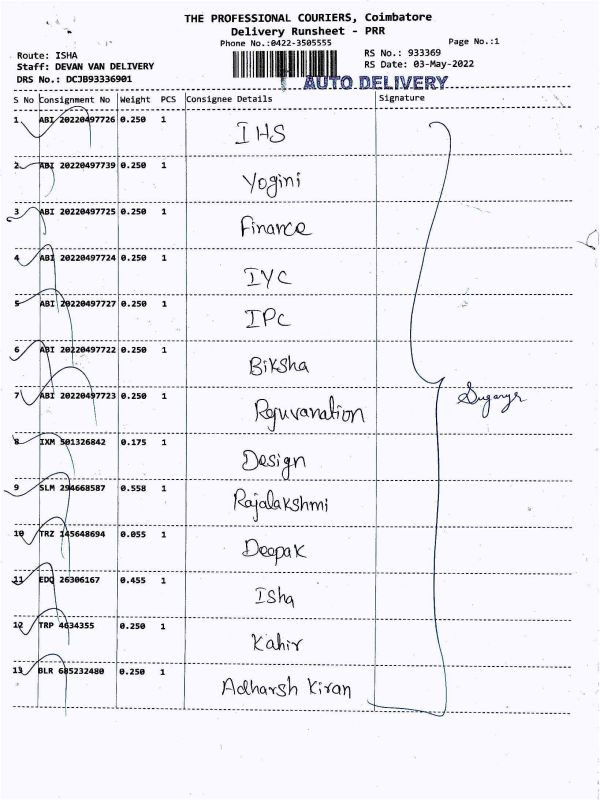 THE PROFESSIONAL COURIERS, Coimbatore
Delivery Runsheet - PRR
Phone No.:0422-3505555 Page No.:1
Route: ISHA RS No.: 933369
Staff: DEVAN VAN DELIVERY RS Date: 03-May-2022
DRS No.: DCJB93336901 AUTO DELIVERY
S No Consignment No Weight PCS Consignee Details Signature
1 ABI 20220497726 0.250 1 IHS
2 ABI 20220497739 0.250 1 Yogini
3 ABI 20220497725 0.250 1 Finance
4 ABI 20220497724 0.250 1 IYC
5 ABI 20220497727 0.250 1 IPC
6 ABI 20220497722 0.250 1 Biksha
7 ABI 20220497723 0.250 1 Rejuvanation
Suganya
8 IXM 501326842 0.175 1 Design
9 SLM 294668587 0.558 1 Rajalakshmi
10 TRZ 145648694 0.055 1 Deepak
11 EDQ 26306167 0.455 1 Isha
12 TRP 4634355 0.250 1 Kahir
13 BLR 685232480 0.250 1 Adharsh Kiran